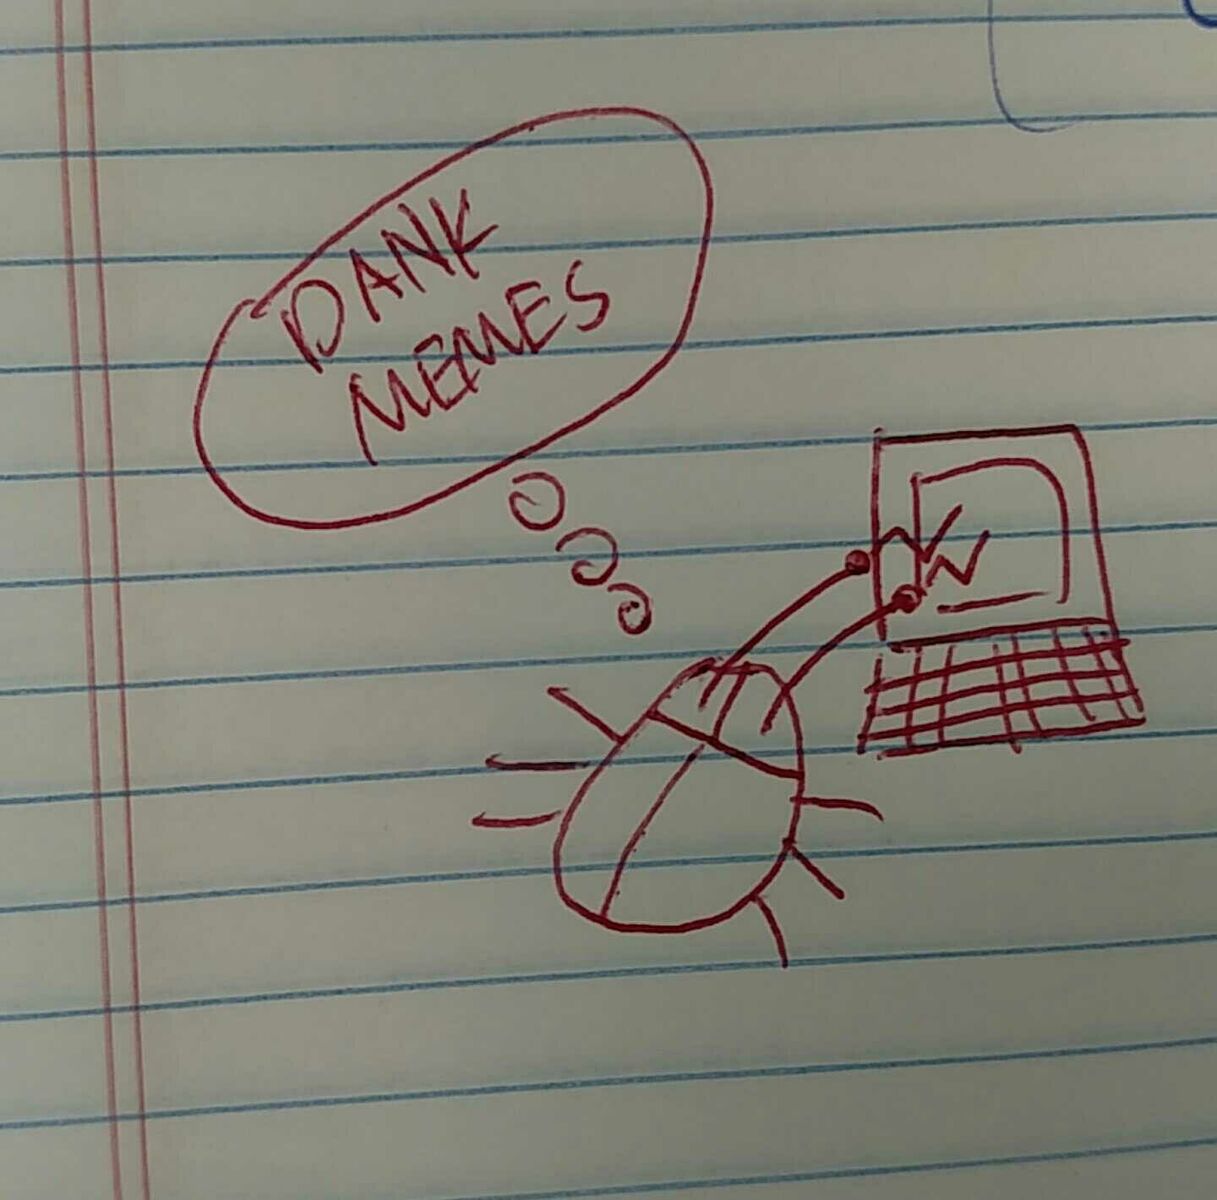 DANK
MEMES